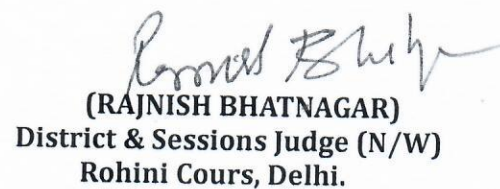 (RAJNISH BHATNAGAR)
District & Sessions Judge (N/W)
Rohini Cours, Delhi.